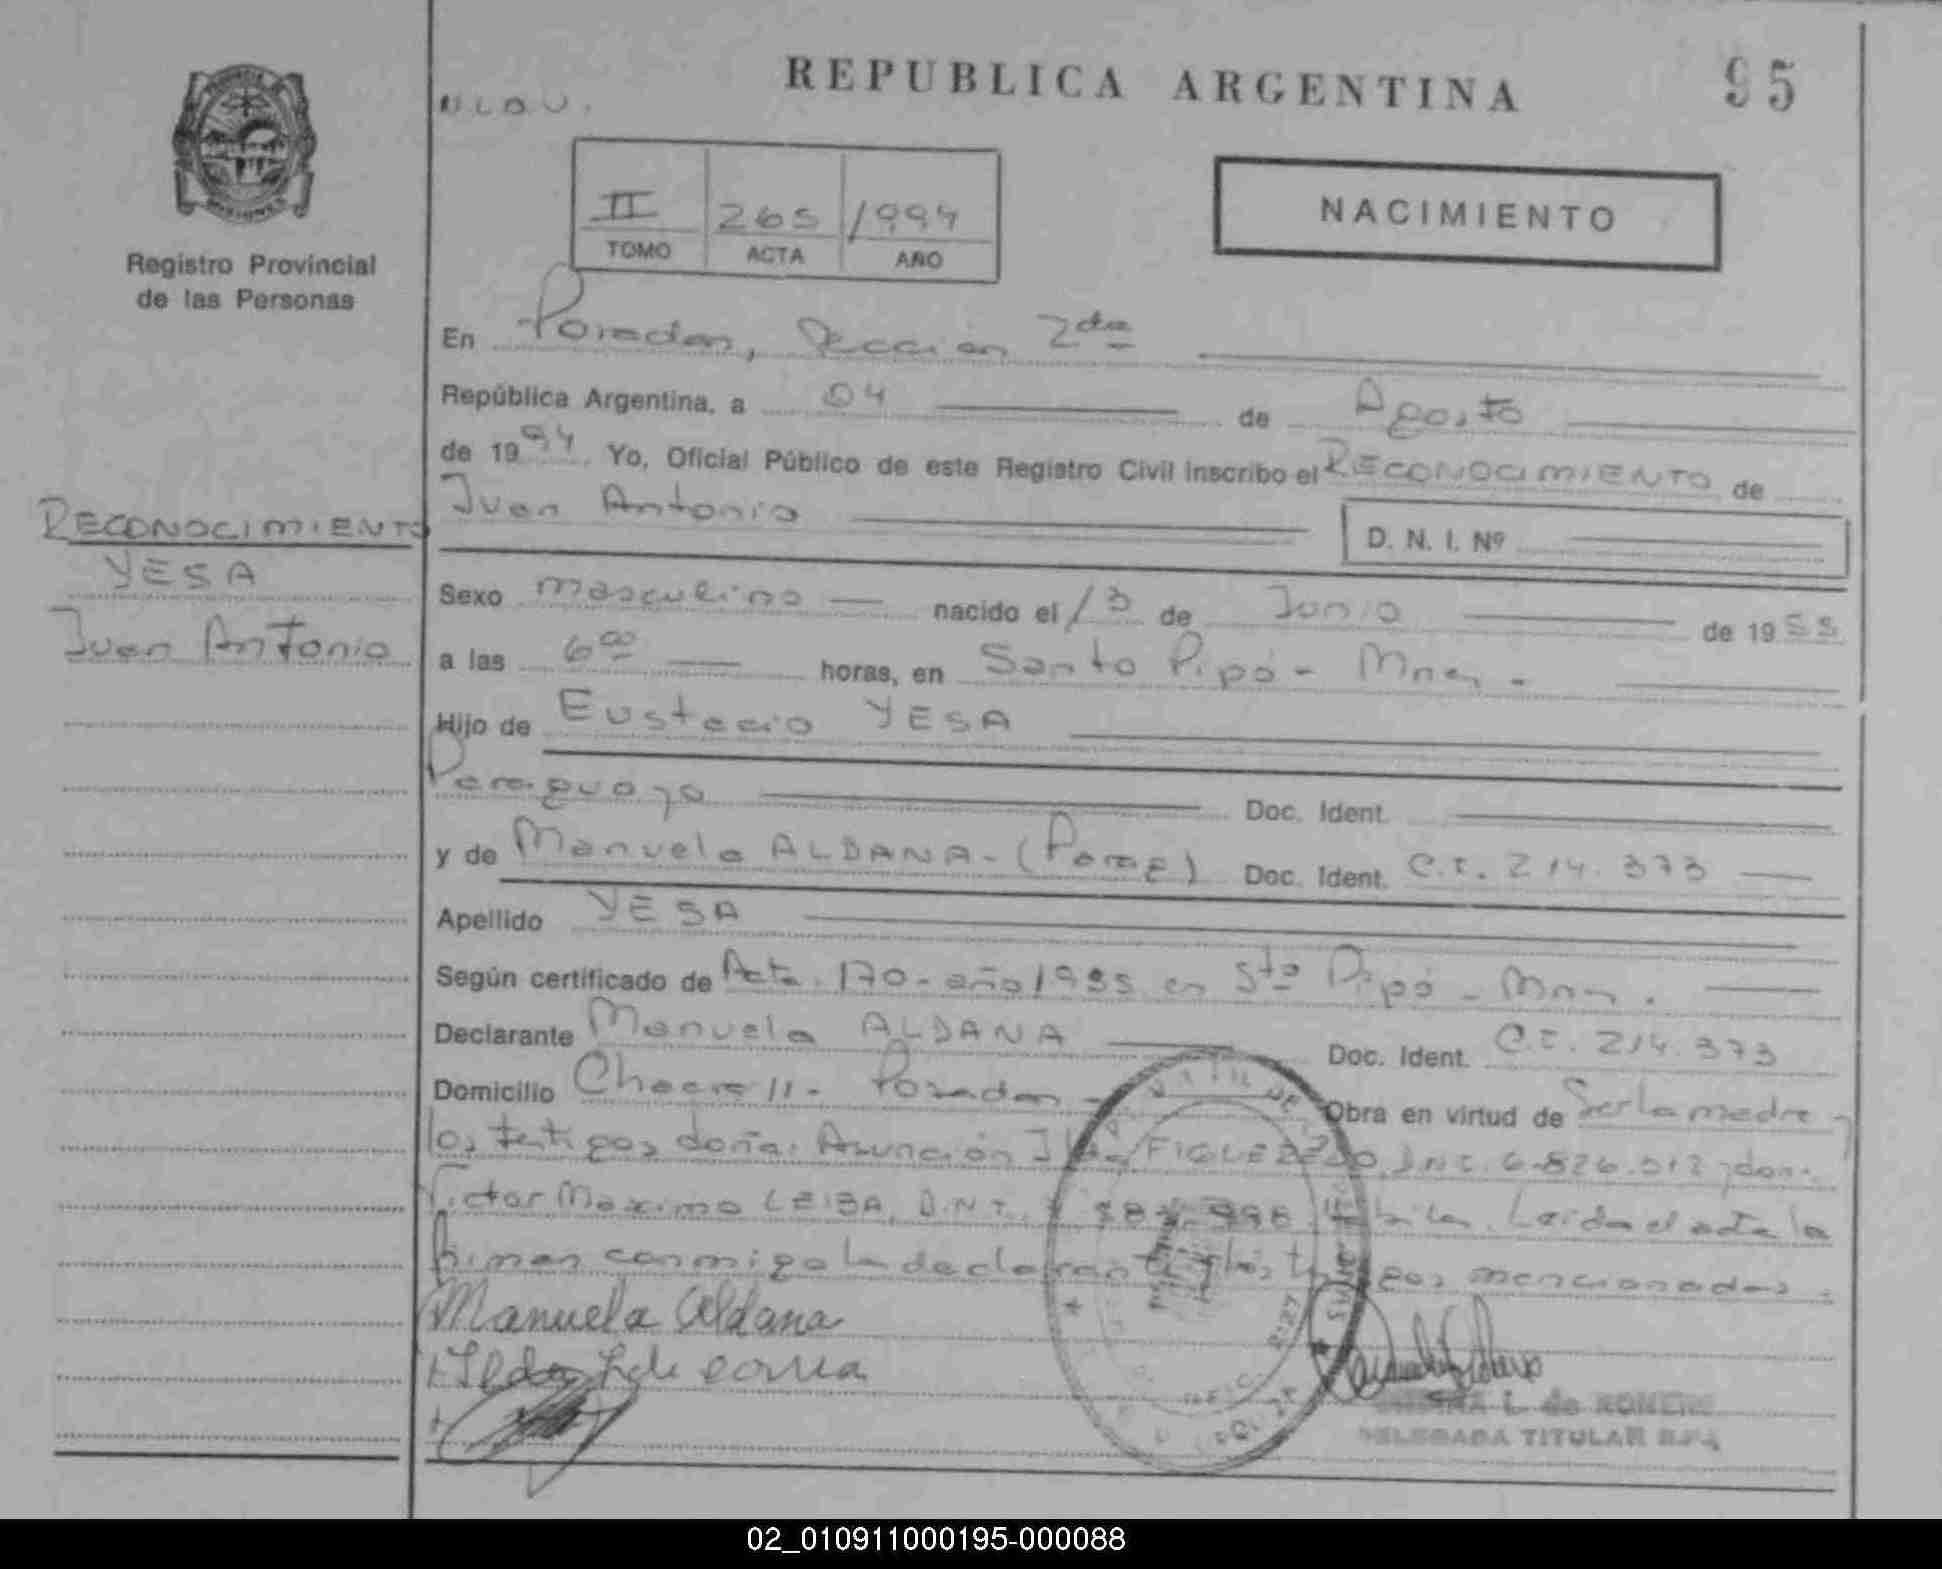 REPUBLICA ARGENTINA
95
II 265 1994
TOMO ACTA AÑO
NACIMIENTO
Registro Provincial
de las Personas
En Posadas, Sección 2da
República Argentina, a 04 de Agosto
de 1994. Yo, Oficial Público de este Registro Civil inscribo el RECONOCIMIENTO de
Juan Antonio
D. N. I. Nº
RECONOCIMIENTO
YESA
Juan Antonio
Sexo masculino nacido el 13 de Junio de 19
a las 6 00 horas, en Santo Pipó - Mnes -
Hijo de Eustacio YESA
Paraguaya Doc. Ident.
y de Manuela ALDANA - (Parag) Doc. Ident. C.I. 214.373
Apellido YESA
Según certificado de Acta. 170 - año en Sto Pipó - Mnes.
Declarante Manuela ALDANA Doc. Ident. C.I. 214.373
Domicilio Chacra 11 - Posadas - Obra en virtud de Ser la madre y
los testigos doña: Asunción FIGUEREDO, D.N.I. 6.826.012 y don:
Victor Maximo LEIBA, D.N.I. Leida el acta la
firman conmigo la declarante y los testigos mencionados.
Manuela Aldana
L. de ROMERO
DELEGADA TITULAR R.P.P.
02_010911000195-000088